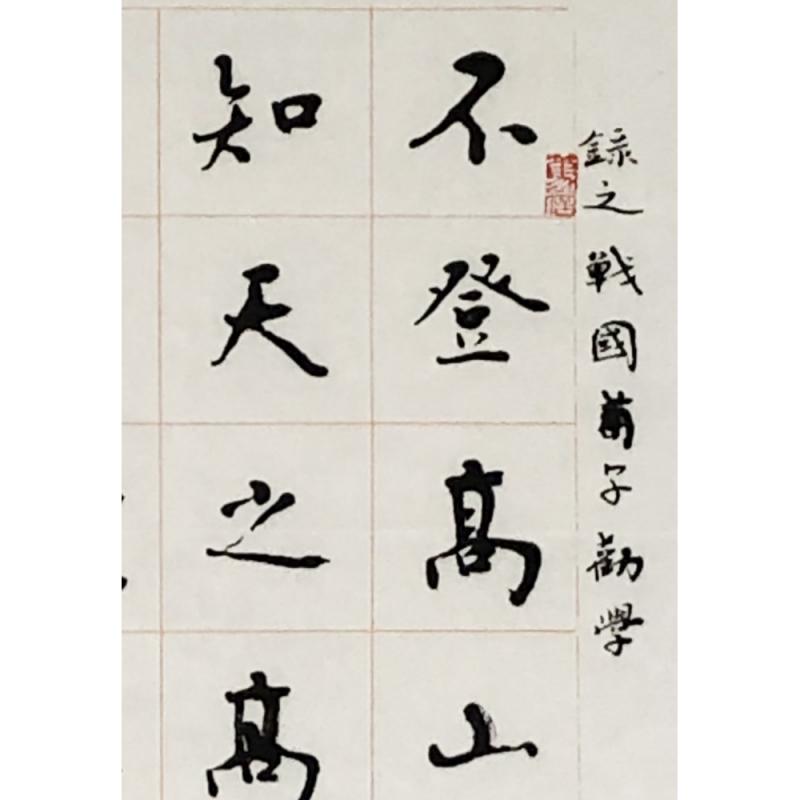 錄之戰國荀子勸學
不登高山
知天之高